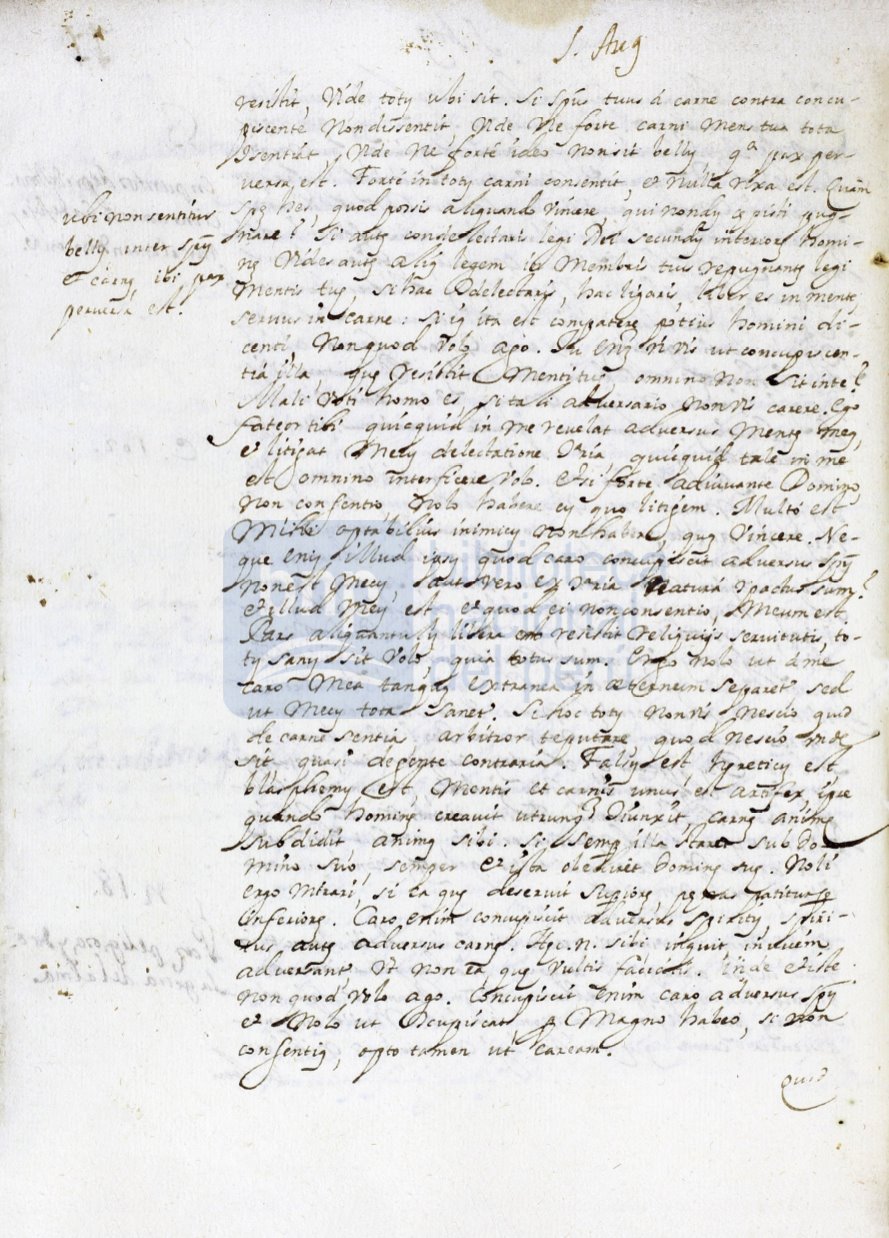 S. Aug
resistit, Vide toty ubi sit. Si spūs tuus á carne contra concu-
piscente Non dissentit, Vide Ne forte carni mens tua tota
9sentiat, Vide Ne forte ideo non sit belly qᵃ pax per-
versa est. Forte in toty carni consentit, et Nulla rixa est. Quam
spę hēs, quod possis aliquando Vincere, qui nondy cępisti pug-
Nare? Si autę condelectaris legi Dei secundy interiorę homi-
nę Vides autę aliā legem in Membris tuis repugnantę legi
Mentis tuę, si hac 9delectaris, hac ligaris, liber es in mente,
servus in carne: si ig ita est compatere potius homini di-
centi, Non quod Volo ago. Tu enim Vis ut concupiscen-
tia illa quę resistit Menti tuę omnino Non sit in te?
Mali Voti homo es si tali adversario non Vis carere. Ego
fateor tibi quicquid in me revelat adversus Mentę meą,
et litigat Mecy delectatione 9traria quicquid tale in me
est omnino interficere Vol. Et si forte adiuvante Domino,
Non consentio, Nolo habere cy quo litigem. Multo est
Mihi optabilius inimicy non habere, quą Vincere. Ne-
que enim illud ipsy quod caro concupiscit adversus spm
non est Mecy, aut vero ex 9traria Natura 9pactus sum?
Et illud Mey est, et quod ei non consentio, Meum est.
Pars aliquantuly libera resistit reliquijs servitutis, to-
ty sany sit Volo, quia totus sum. Ergo Nolo ut á me
caro Mea tanquą extranea in æternum separet sed
ut Mecy tota sanet. Si hoc toty Non Vis Nescio quid
de carne sentia arbitror te putare quod Nescio inde
sit quasi de gente contraria. Falsy est hęreticy est
blasphemy est, Mentis et carnis unus est artifex ipse
quando hominę creavit utrungʒ 9iunxit carnę animę
subdidit animą sibi. Si semp illa staret sub Do-
mino suo, semper et ista obediret Dominę suę. Noli
ergo Mirari, si ea quę deseruit Supiorę, pęnas patitur p
Inferiorę. Caro enim concupiscit adversus spirity spiri-
tus autę adversus carnę. Hęc .n. sibi inquit invicem
adversant Ut Non ea quę Vultis faciatis. Unde et iste
Non quod Volo ago. Concupiscit enim caro adversus spm
et Nolo ut 9cupiscat p Magno habeo, si non
consentię, opto tamen ut caream.
Quid
ubi non sentitur
belly inter spm
et carnę ibi pax
perversa est.
biblioteca
nacional
del perú